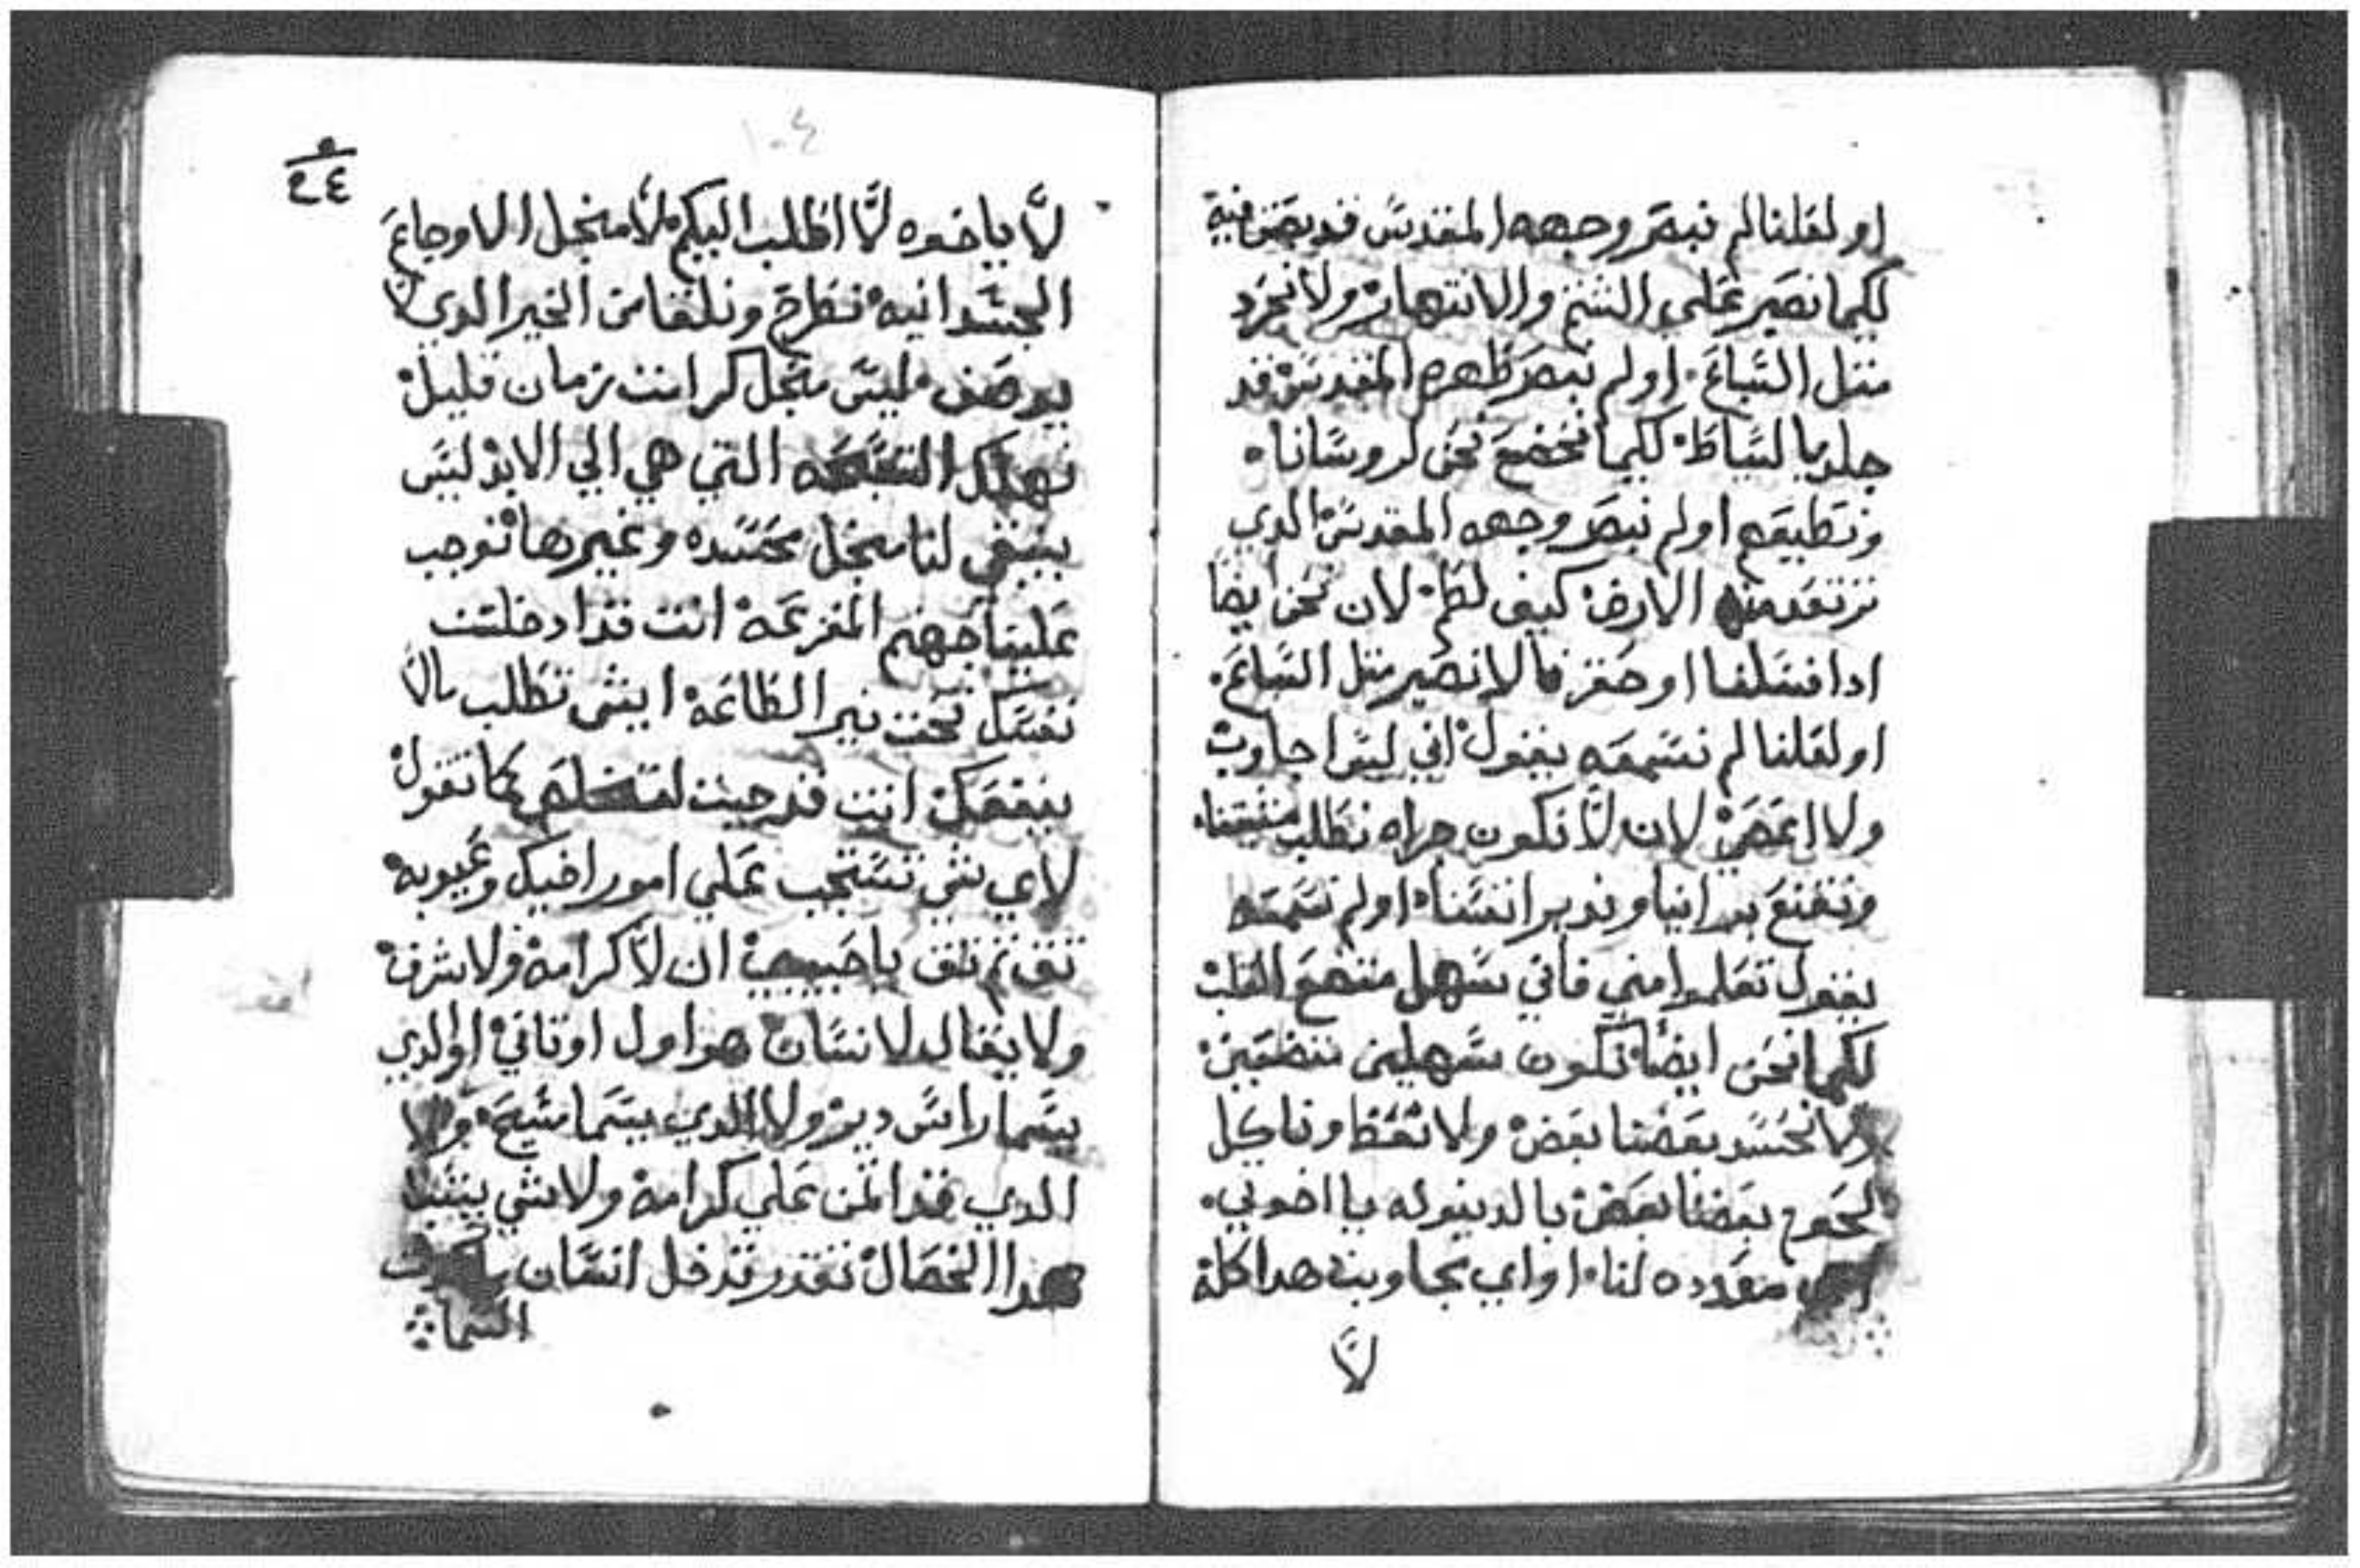 او لعلنا لم نبصر وجهه المقدس قد بصق فيه
لكيما نصير علي الشتم والانتهار ولا نحرد
متل السباع. اولم نبصر ظهره المقدس قد
جلد بالسياط. لكيما نخضع نحن لروسانا.
ونطيعهم اولم نبصر وجهه المقدس الدي
ترتعد منه الارض كيف لطم. لان نحن ايضا
ادا فشلنا او حقر فالا نصير متل السباع.
او لعلنا لم نسمعه يقول اني ليس اجاوب
ولا اعصي لان لا نكون جراه نطلب
ونقنع براينا وندبر انفسنا. اولم نسمعه
يقول تعلموا مني فاني سهل متضع القلب
لكيما نحن ايضا نكون سهلين متضعين
ولا نحسد بعضنا بعض ولا وناكل
لحوم بعضنا بعض بالدينونه يا اخوتي.
معدده لنا. او اي تجاوبنه هدا كله
لا
١٠٤
لا ياخوه لا اطلب اليكم لا منجل الاوجاع
الجسدانيه نطرح ونلقا من الخير الدي لا
يوصف. ليس منجل كرامت زمان قليل
نهلك التي هي الي الابد ليس
ينبغي لنا منجل محسده وغيرها نوجب
علينا جهنم المفزعه انت قد ادخلت
نفسك تحت نير الطاعه ايش تطلب بالا
ينفعك انت قد جيت كما تقول
لاي شي تستجب علي امور اخيك وعيوبه
تق تم تق يا حبيبي ان لا كرامه ولا شرف
ولا يقال لانسان هو اول او تاني او الدي
يسما راس دير ولا الدي يسما شيخ. ولا
الدي قد اتمن علي كرامه ولا شي
هدا الخصال تقدر تدخل انسان
السما